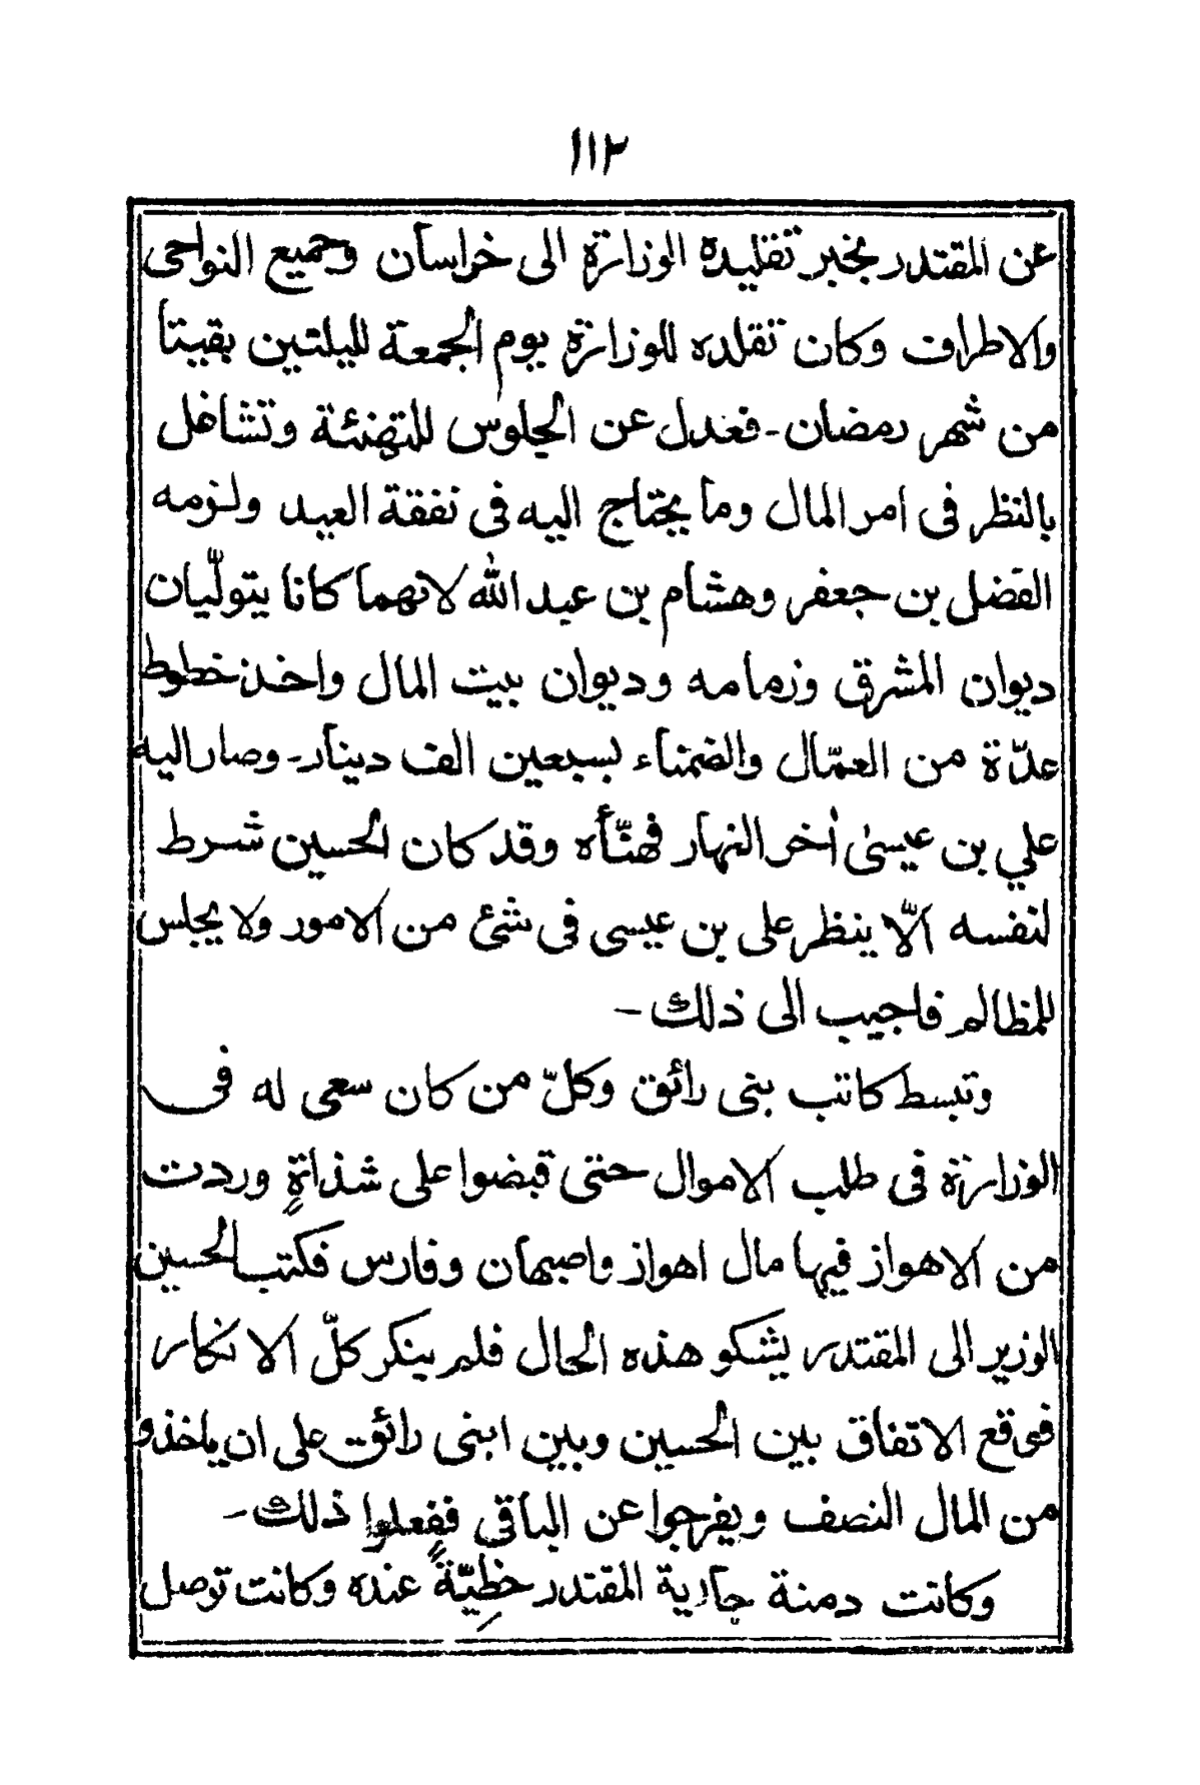 ١١٢
عن المقتدر بخبر تقليده الوزارة الى خراسان وجميع النواحى
والاطراف وكان تقلده للوزارة يوم الجمعة لليلتين بقيتا
من شهر رمضان - فعدل عن الجلوس للتهنئة وتشاغل
بالنظر فى امر المال وما يحتاج اليه فى نفقة العيد ولزمه
الفضل بن جعفر وهشام بن عبد الله لانهما كانا يتولّيان
ديوان المشرق وزمامه وديوان بيت المال واخذ خطوط
عدّة من العمّال والضمناء بسبعين الف دينار - وصار اليه
علي بن عيسىٰ اٰخر النهار فهنّأه وقد كان الحسين شرط
لنفسه الّا ينظر على بن عيسى فى شئ من الامور ولا يجلس
للمظالم فاجيب الى ذلك -
وتبسط كاتب بنى رائق وكلّ من كان سعى له فى
الوزارة فى طلب الاموال حتى قبضوا على شذاةٍ وردت
من الاهواز فيها مال اهواز واصبهان وفارس فكتب الحسين
الوزير الى المقتدر يشكو هذه الحال فلم ينكر كلّ الا نكار
فوقع الاتفاق بين الحسين وبين ابنى رائق على ان ياخذو
من المال النصف ويفرجوا عن الباقى ففعلوا ذلك -
وكانت دمنة جارية المقتدر خظِيّةً عنده وكانت توصل